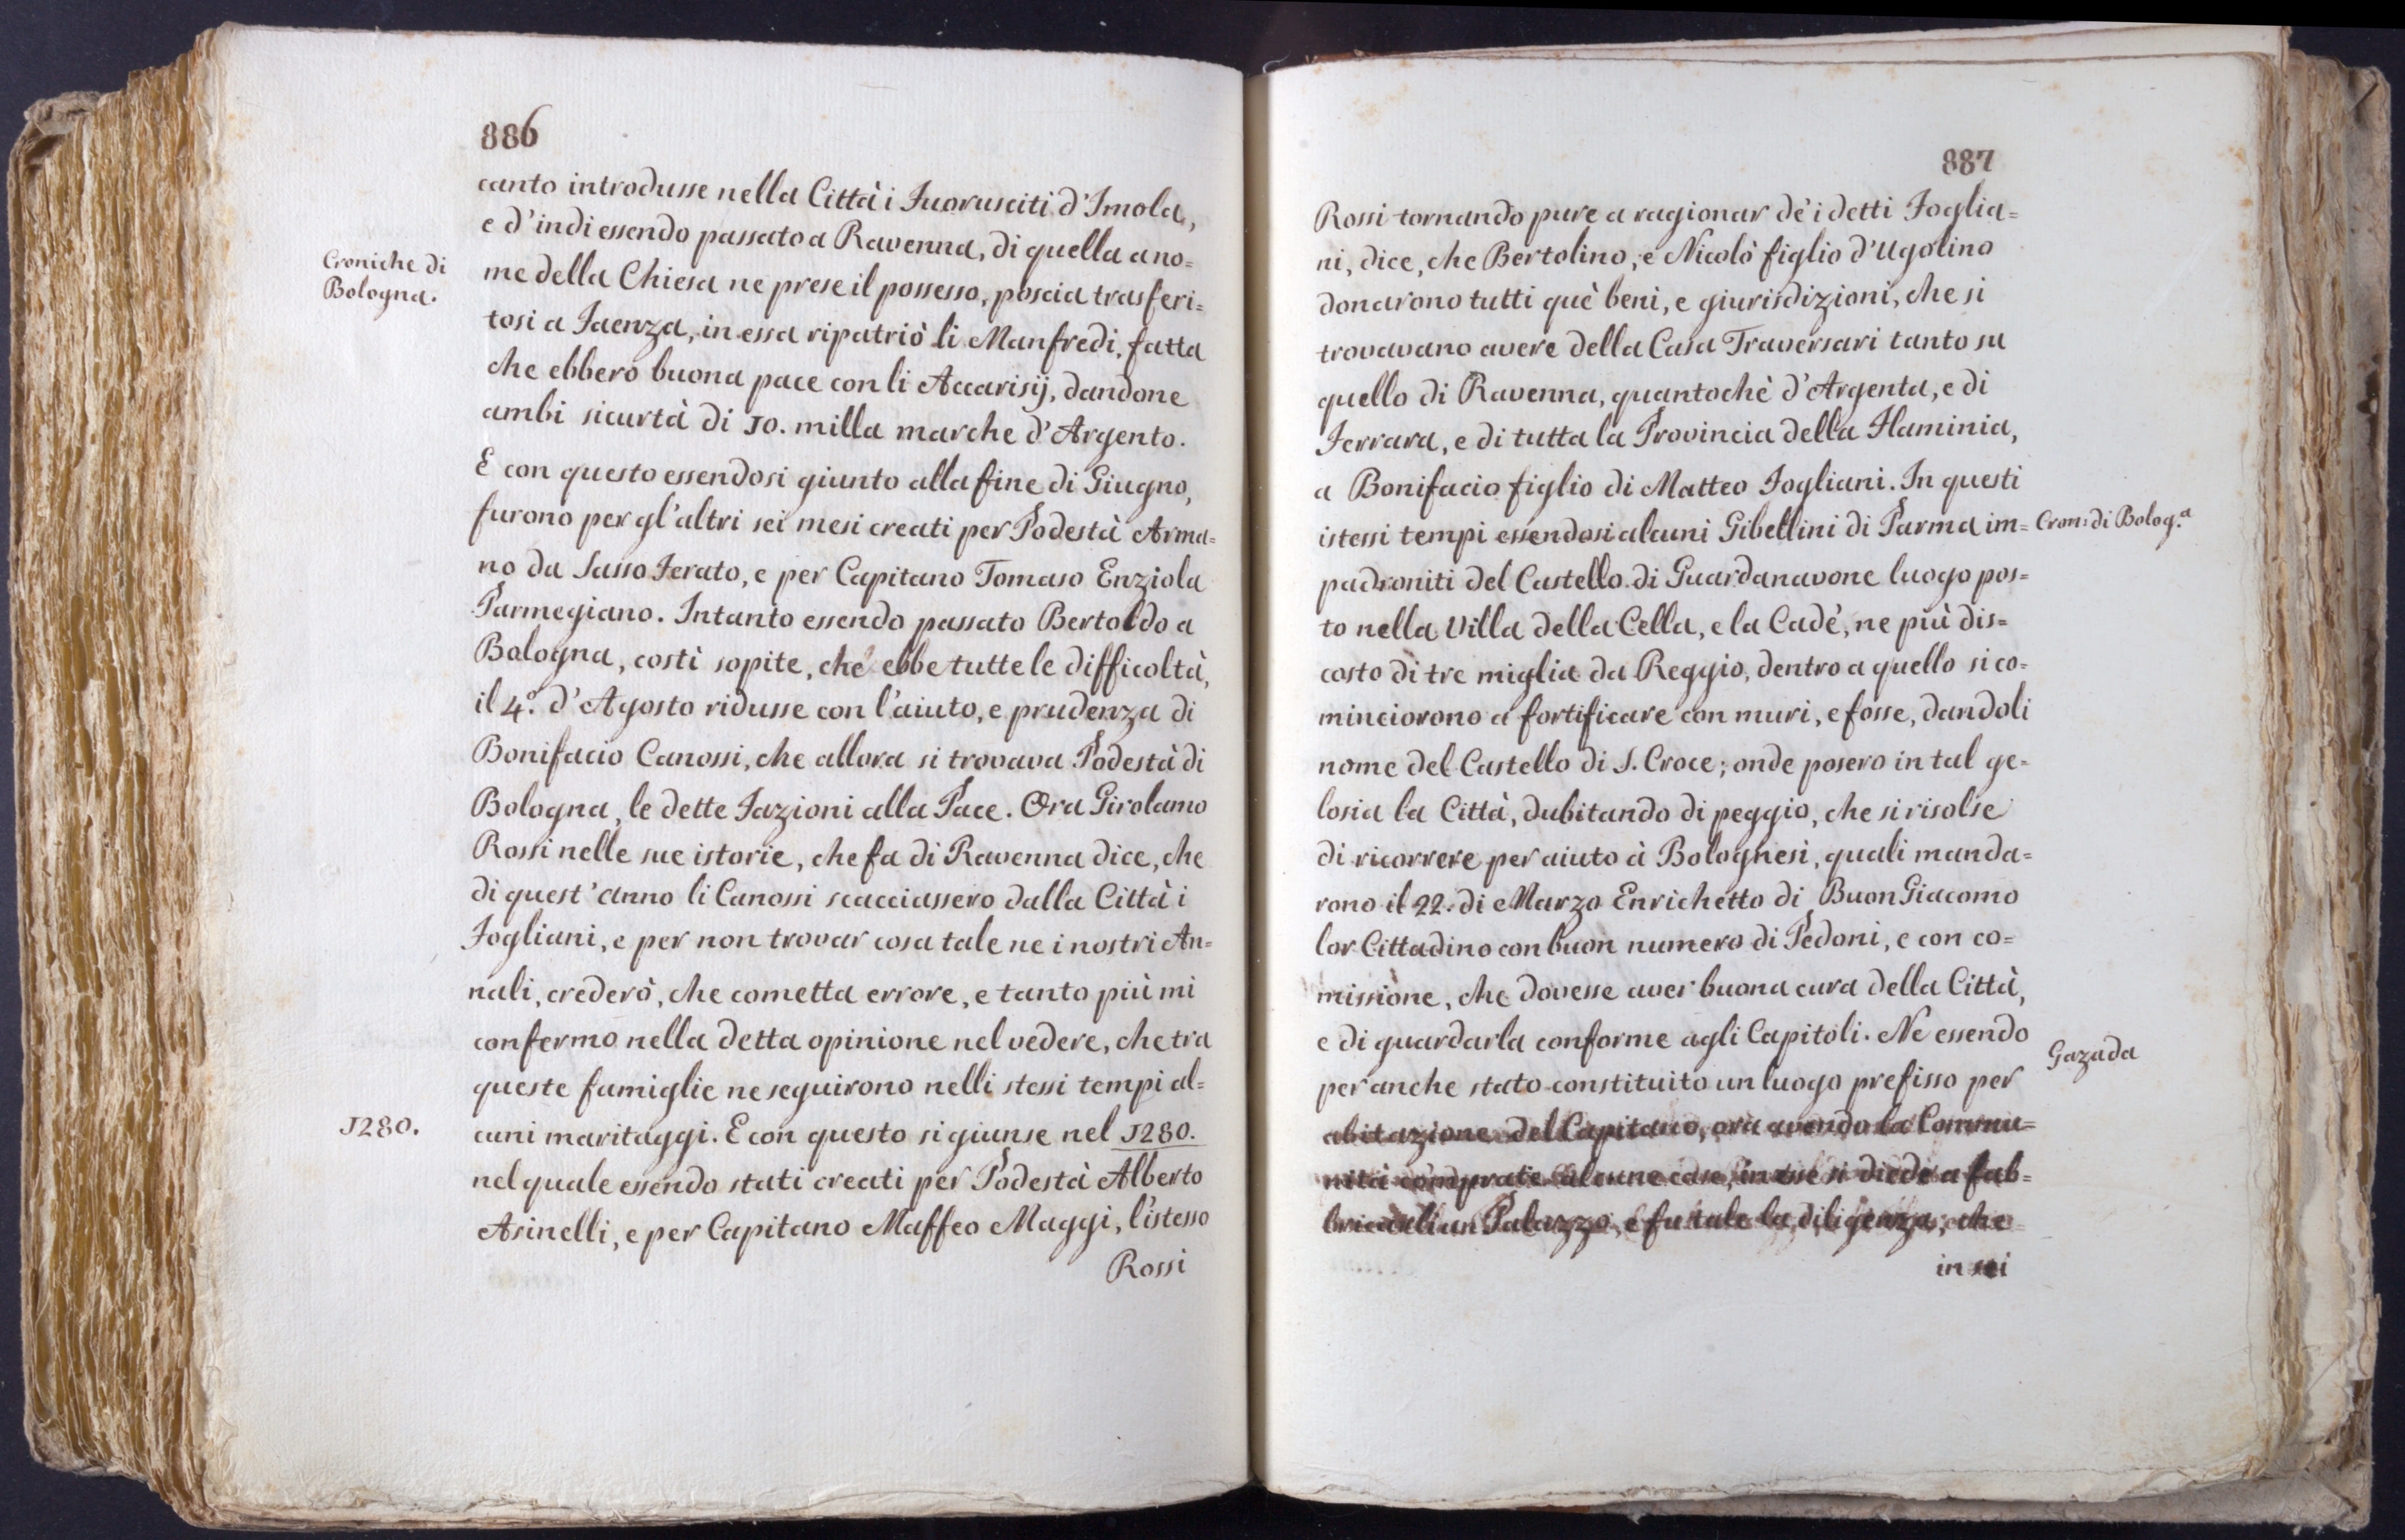 886
canto introdusse nella Città i Fuorusciti d'Imola,
e d'indi essendo passato a Ravenna, di quella a no=
Croniche di
Bologna.
me della Chiesa ne prese il possesso, poscia trasferi=
tosi a Faenza, in essa ripatriò li Manfredi, fatta
che ebbero buona pace con li Accarisij, dandone
ambi sicurtà di 10. milla marche d'Argento.
E con questo essendosi giunto alla fine di Giugno,
furono per gl'altri sei mesi creati per Podestà Arma=
no da Sasso Ferato, e per Capitano Tomaso Enziola
Parmegiano. Intanto essendo passato Bertoldo a
Bologna, costì sopite, che ebbe tutte le difficoltà,
il 4.º d'Agosto ridusse con l'aiuto, e prudenza di
Bonifacio Canossi, che allora si trovava Podestà di
Bologna, le dette Fazioni alla Pace. Ora Girolamo
Rossi nelle sue istorie, che fa di Ravenna dice, che
di quest'anno li Canossi scacciassero dalla Città i
Fogliani, e per non trovar cosa tale ne i nostri An=
nali, crederò, che cometta errore, e tanto più mi
confermo nella detta opinione nel vedere, che tra
queste famiglie ne seguirono nelli stessi tempi al=
1280.
cuni maritaggi. E con questo si giunse nel 1280.
nel quale essendo stati creati per Podestà Alberto
Asinelli, e per Capitano Maffeo Maggi, l'istesso
Rossi
887
Rossi tornando pure a ragionar dè i detti Foglia=
ni, dice, che Bertolino, e Nicolò figlio d'Ugolino
donarono tutti què beni, e giurisdizioni, che si
trovavano avere della Casa Traversari tanto su
quello di Ravenna, quantochè d'Argenta, e di
Ferrara, e di tutta la Provincia della Flaminia,
a Bonifacio figlio di Matteo Fogliani. In questi
istessi tempi essendosi alcuni Gibellini di Parma im=
Cron: di Bolog.ª
padroniti del Castello di Guardanavone luogo pos=
to nella Villa della Cella, e la Cadè, ne più dis=
costo di tre miglia da Reggio, dentro a quello si co=
minciorono a fortificare con muri, e fosse, dandoli
nome del Castello di S. Croce; onde posero in tal ge=
losia la Città, dubitando di peggio, che si risolse
di ricorrere per aiuto à Bolognesi, quali manda=
rono il 22. di Marzo Enrichetto di Buon Giacomo
lor Cittadino con buon numero di Pedoni, e con co=
missione, che dovesse aver buona cura della Città,
e di guardarla conforme agli Capitoli. Ne essendo
Gazada
per anche stato constituito un luogo prefisso per
abitazione del Capitano, ora avendo la Commu=
nità comprate alcune case, in esse si diede a fab=
bricarli un Palazzo, e fu tale la diligenza, che
in sei